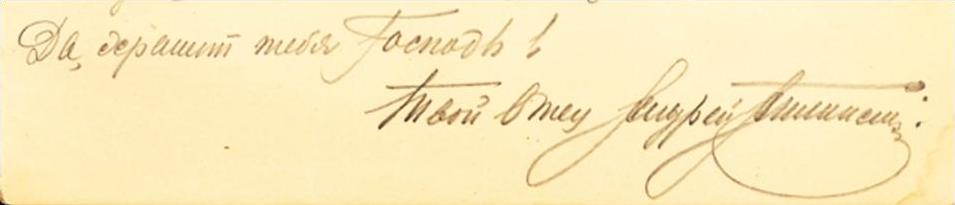 Да, хранит тебя Господь!
Твой Отец Андрей